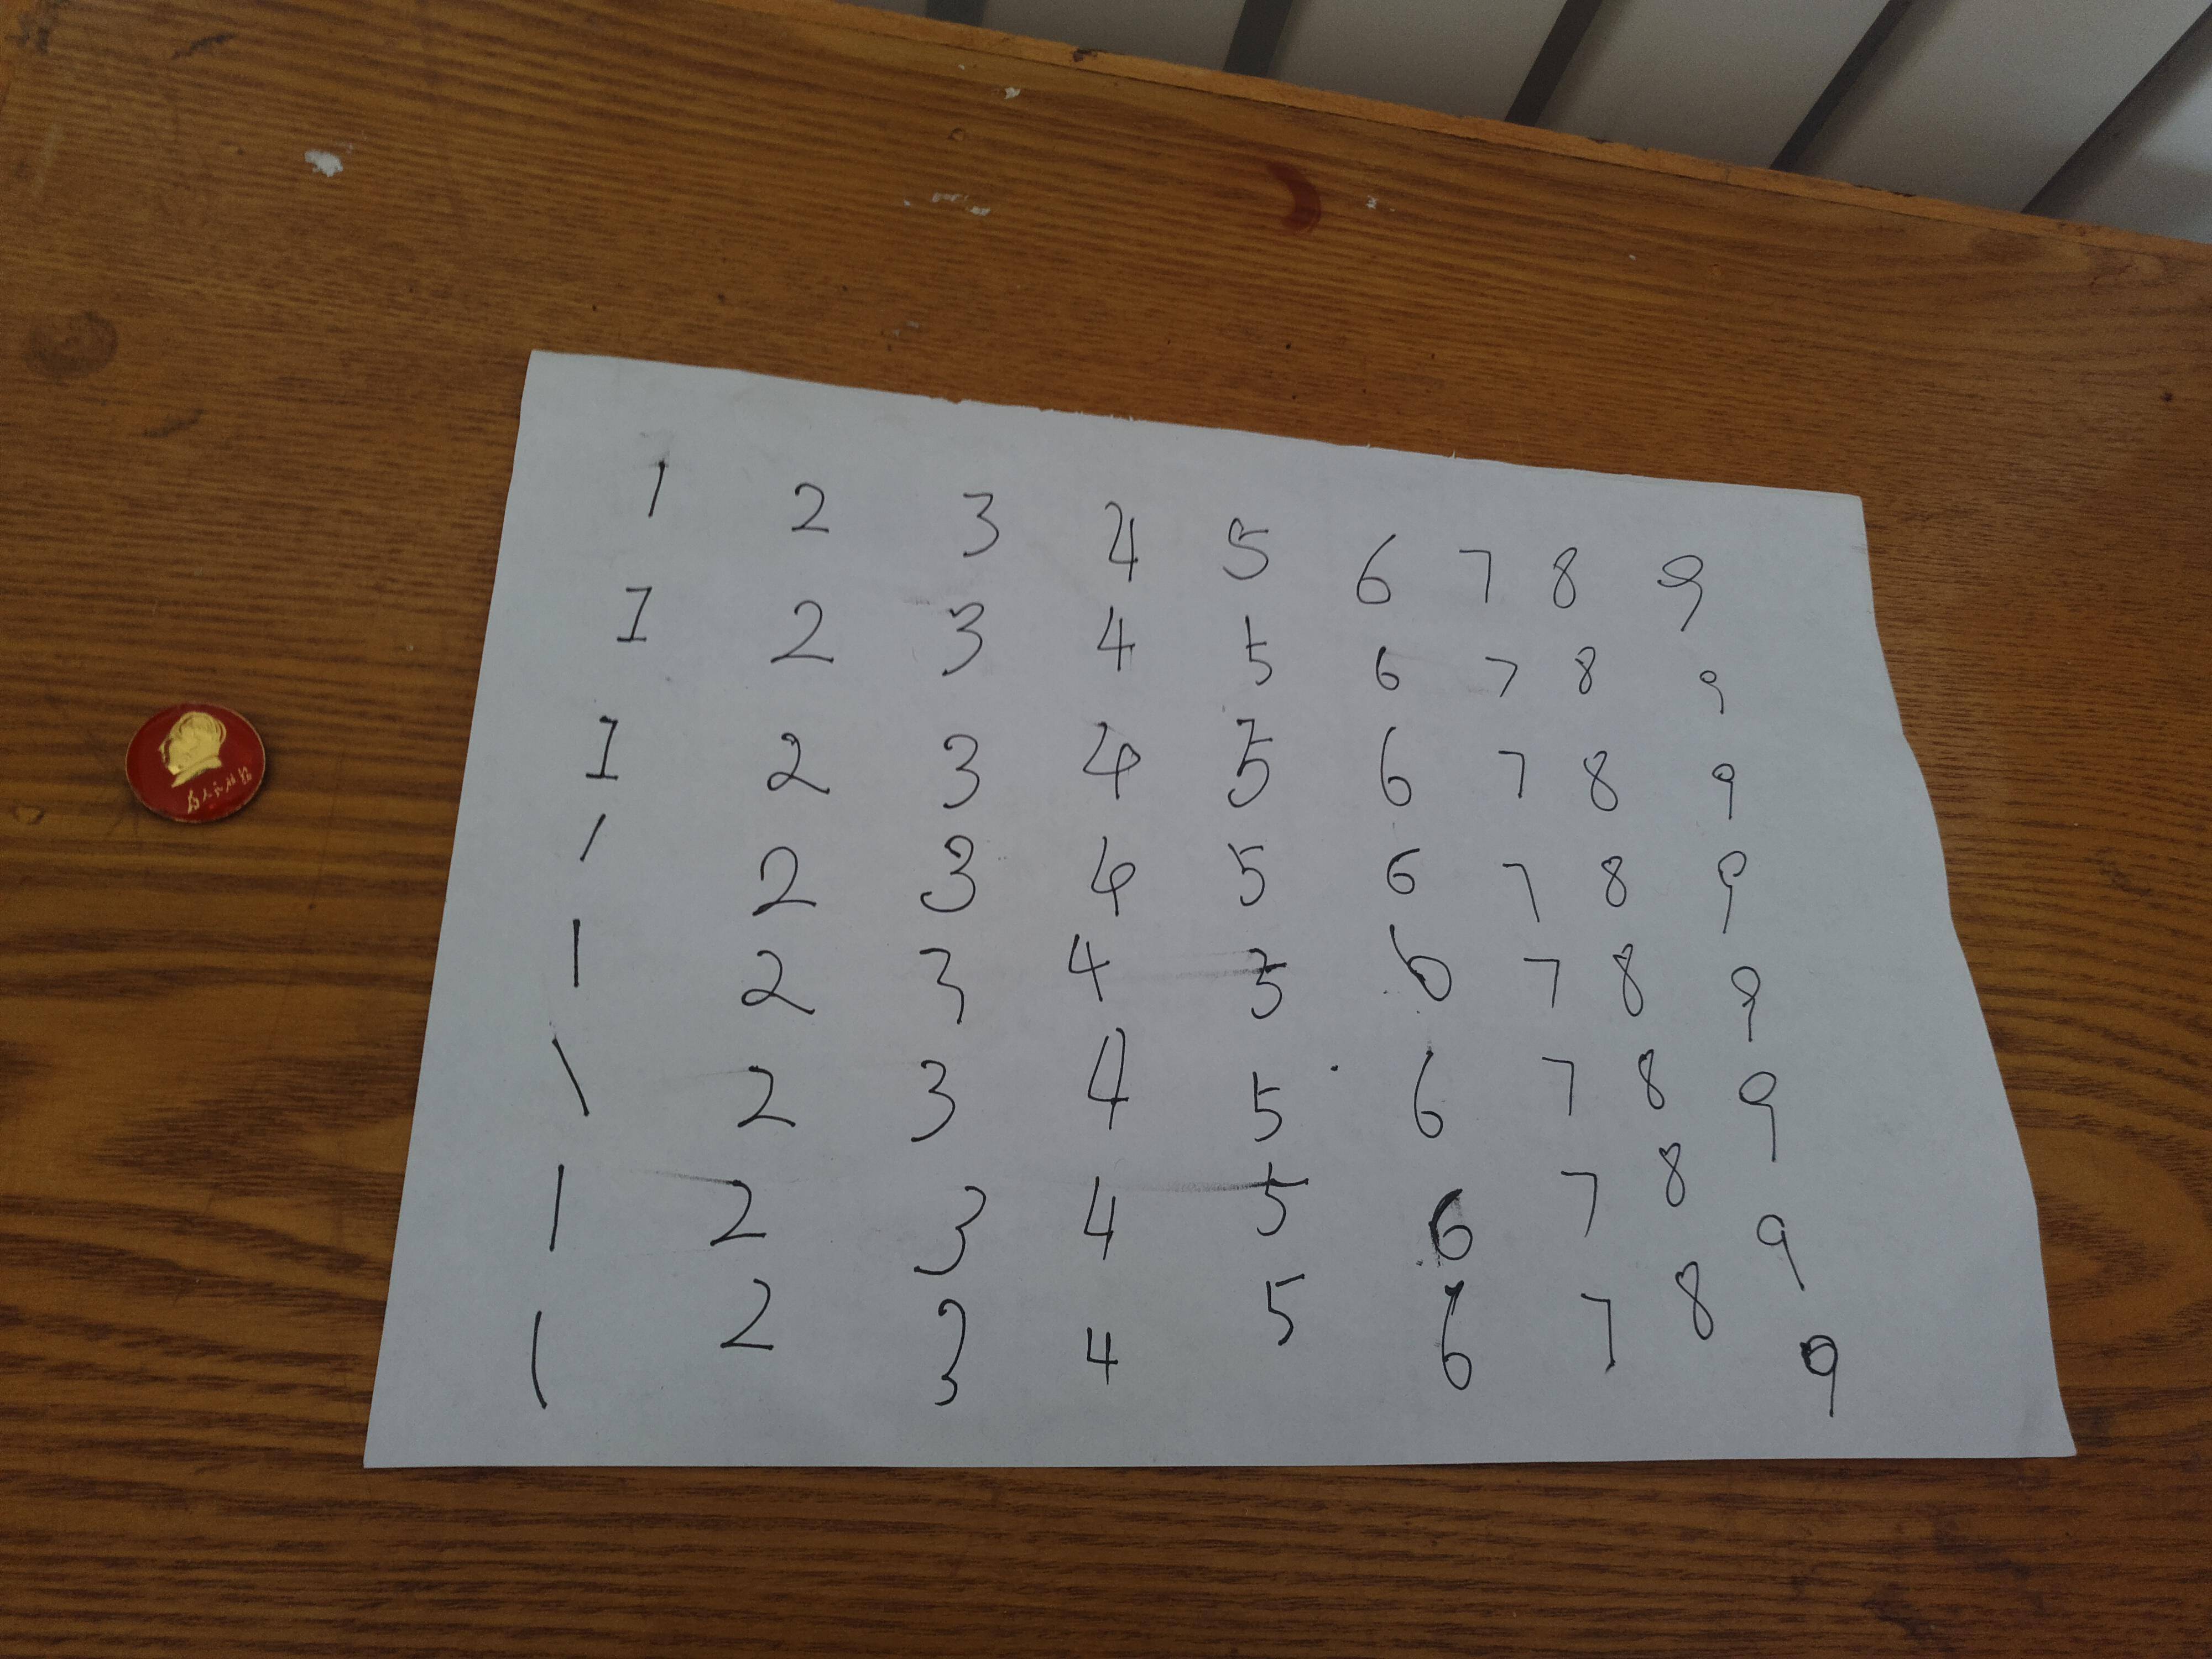 1 2 3 4 5 6 7 8 9
1 2 3 4 5 6 7 8 9
1 2 3 4 5 6 7 8 9
1 2 3 4 5 6 7 8 9
1 2 3 4 5 6 7 8 9
1 2 3 4 5 6 7 8 9
1 2 3 4 5 6 7 8 9
1 2 3 4 5 6 7 8 9
为人民服务